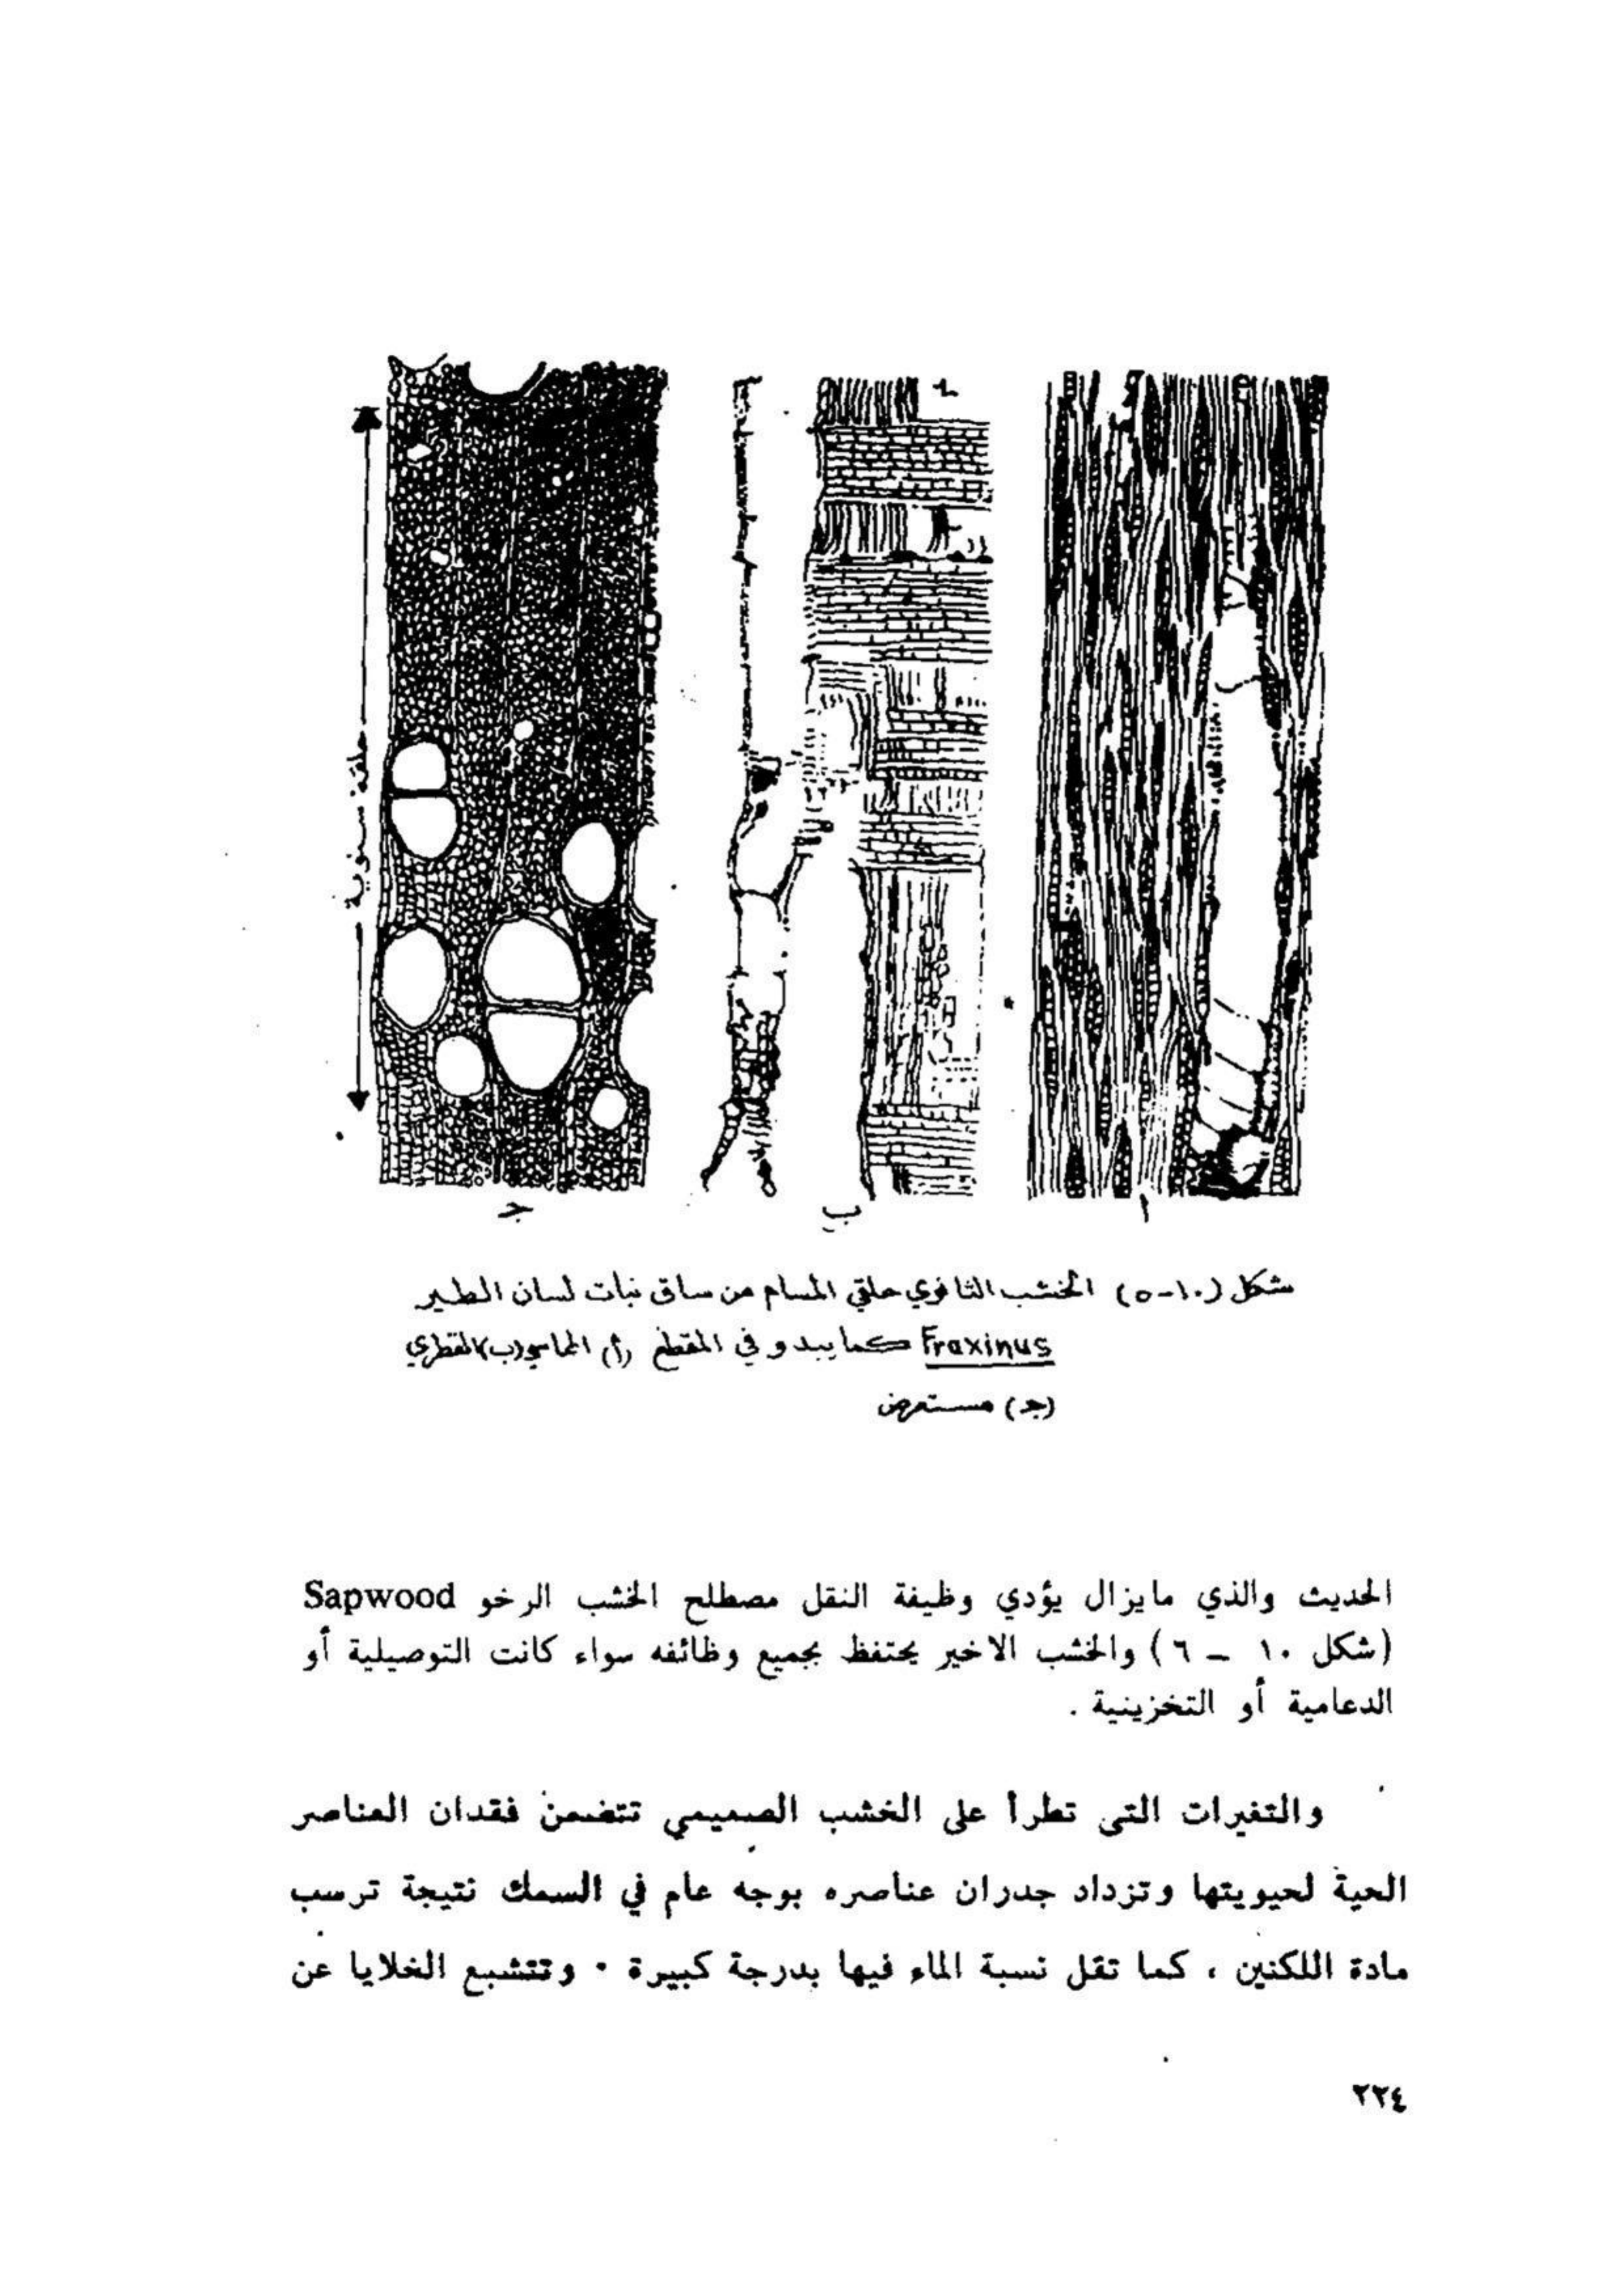 حلقة سنوية
ج
ب
أ
شكل (١٠-٥) الخشب الثانوي حلقي المسام من ساق نبات لسان الطير
Fraxinus كما يبدو في المقطع (أ) المماسي (ب) القطري
(ج) مستعرض
الحديث والذي مايزال يؤدي وظيفة النقل مصطلح الخشب الرخو Sapwood
(شكل ١٠ - ٦) والخشب الاخير يحتفظ بجميع وظائفه سواء كانت التوصيلية أو
الدعامية أو التخزينية .
والتغيرات التي تطرأ على الخشب الصميمي تتضمن فقدان العناصر
الحية لحيويتها وتزداد جدران عناصره بوجه عام في السمك نتيجة ترسب
مادة اللكنين ، كما تقل نسبة الماء فيها بدرجة كبيرة . وتتشبع الخلايا عن
٢٢٤